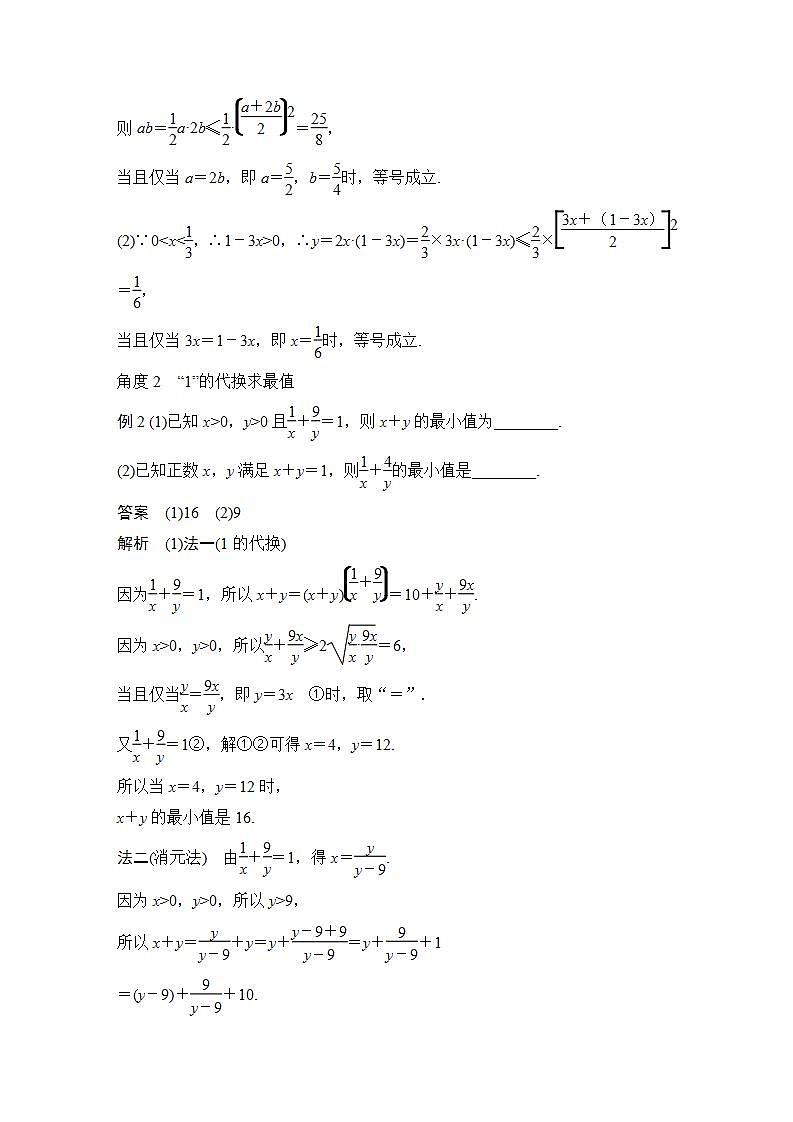 则 ab=\frac{1}{2}a·2b≤\frac{1}{2}·(\frac{a+2b}{2})^2=\frac{25}{8},
当且仅当 a=2b,即 a=\frac{5}{2},b=\frac{5}{4}时,等号成立.
(2)∵0<x<\frac{1}{3},∴1-3x>0,∴y=2x·(1-3x)=\frac{2}{3}×3x·(1-3x)≤\frac{2}{3}×[\frac{3x+(1-3x)}{2}]^2
=\frac{1}{6},
当且仅当 3x=1-3x,即 x=\frac{1}{6}时,等号成立.
角度 2 “1”的代换求最值
例 2 (1)已知 x>0,y>0 且\frac{1}{x}+\frac{9}{y}=1,则 x+y 的最小值为________.
(2)已知正数 x,y 满足 x+y=1,则\frac{1}{x}+\frac{4}{y}的最小值是________.
答案 (1)16 (2)9
解析 (1)法一(1 的代换)
因为\frac{1}{x}+\frac{9}{y}=1,所以 x+y=(x+y)(\frac{1}{x}+\frac{9}{y})=10+\frac{y}{x}+\frac{9x}{y}.
因为 x>0,y>0,所以\frac{y}{x}+\frac{9x}{y}≥2\sqrt{\frac{y}{x}·\frac{9x}{y}}=6,
当且仅当\frac{y}{x}=\frac{9x}{y},即 y=3x ①时,取“=”.
又\frac{1}{x}+\frac{9}{y}=1②,解①②可得 x=4,y=12.
所以当 x=4,y=12 时,
x+y 的最小值是 16.
法二(消元法) 由\frac{1}{x}+\frac{9}{y}=1,得 x=\frac{y}{y-9}.
因为 x>0,y>0,所以 y>9,
所以 x+y=\frac{y}{y-9}+y=y+\frac{y-9+9}{y-9}=y+\frac{9}{y-9}+1
=(y-9)+\frac{9}{y-9}+10.